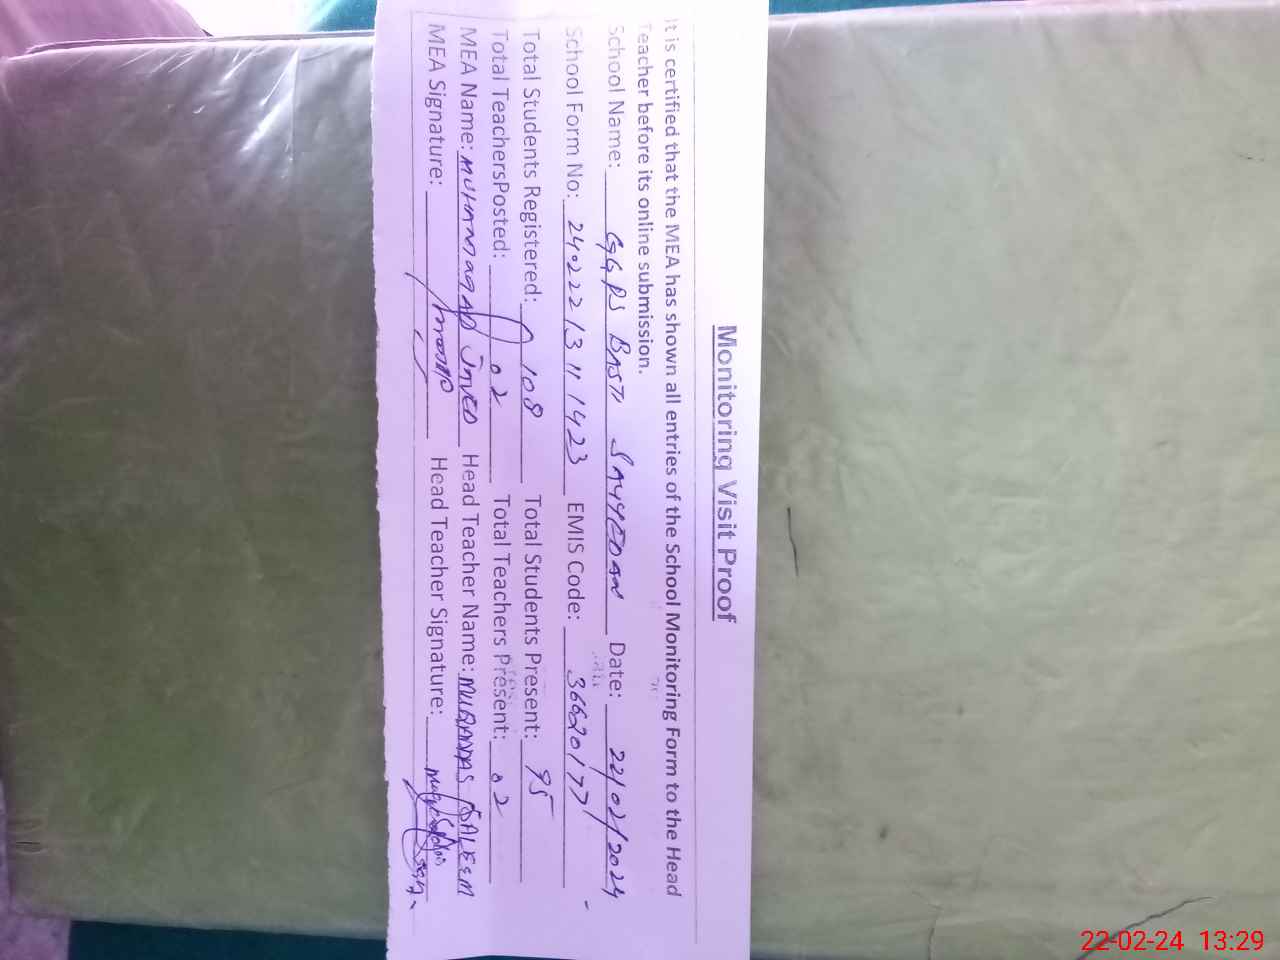 Monitoring Visit Proof
It is certified that the MEA has shown all entries of the School Monitoring Form to the Head
Teacher before its online submission.
School Name: GGPS BASTI SAYYEDAN Date: 22/02/2024
School Form No: 24022213111423 EMIS Code: 36620177
Total Students Registered: 108 Total Students Present: 95
Total TeachersPosted: 02 Total Teachers Present: 02
MEA Name: MUHAMMAD JAVED Head Teacher Name: SALEEM
MEA Signature: Head Teacher Signature:
22-02-24 13:29